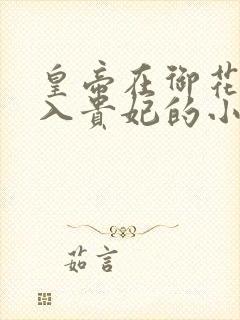 皇帝在御花
入贵妃的小
茹言